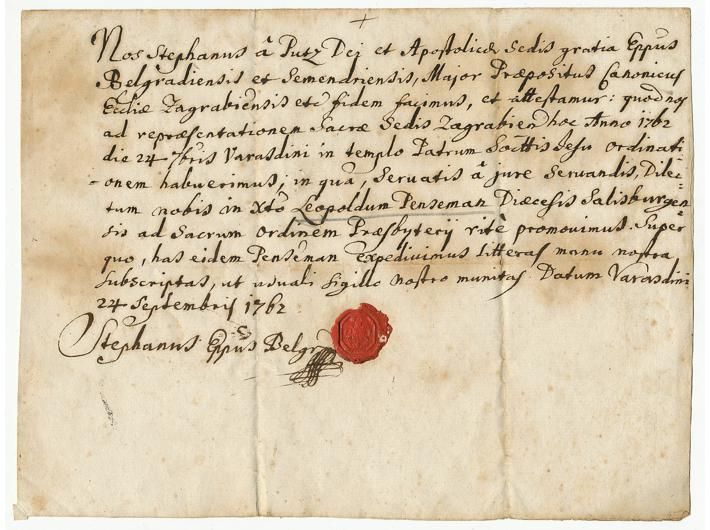 Nos Stephanus â Putz Dei et Apostolicæ Sedis gratia Eppus
Belgradiensis et Semendriensis, Major Præpositus Canonicus
Eccliæ Zagrabiensis etc fidem facimus, et attestamur: quod nos
ad repræsentationem Sacræ Sedis Zagrabien hoc Anno 1762
die 24 7bris Varasdini in templo Patrum Socttis Jesu ordinati
-onem habuerimus, in qua, servatis â jure servandis, Dilec-
tum nobis in Xto Leopoldum Penseman Diæcesis Salisburgen
sis ad Sacrum Ordinem Præsbyterij ritè promovimus. Super
quo, has eidem Penseman expedivimus litteras manu nostra
subscriptas, ut usuali sigillo nostro munitas. Datum Varasdini
24 Septembris 1762
Stephanus Eppus Belgr